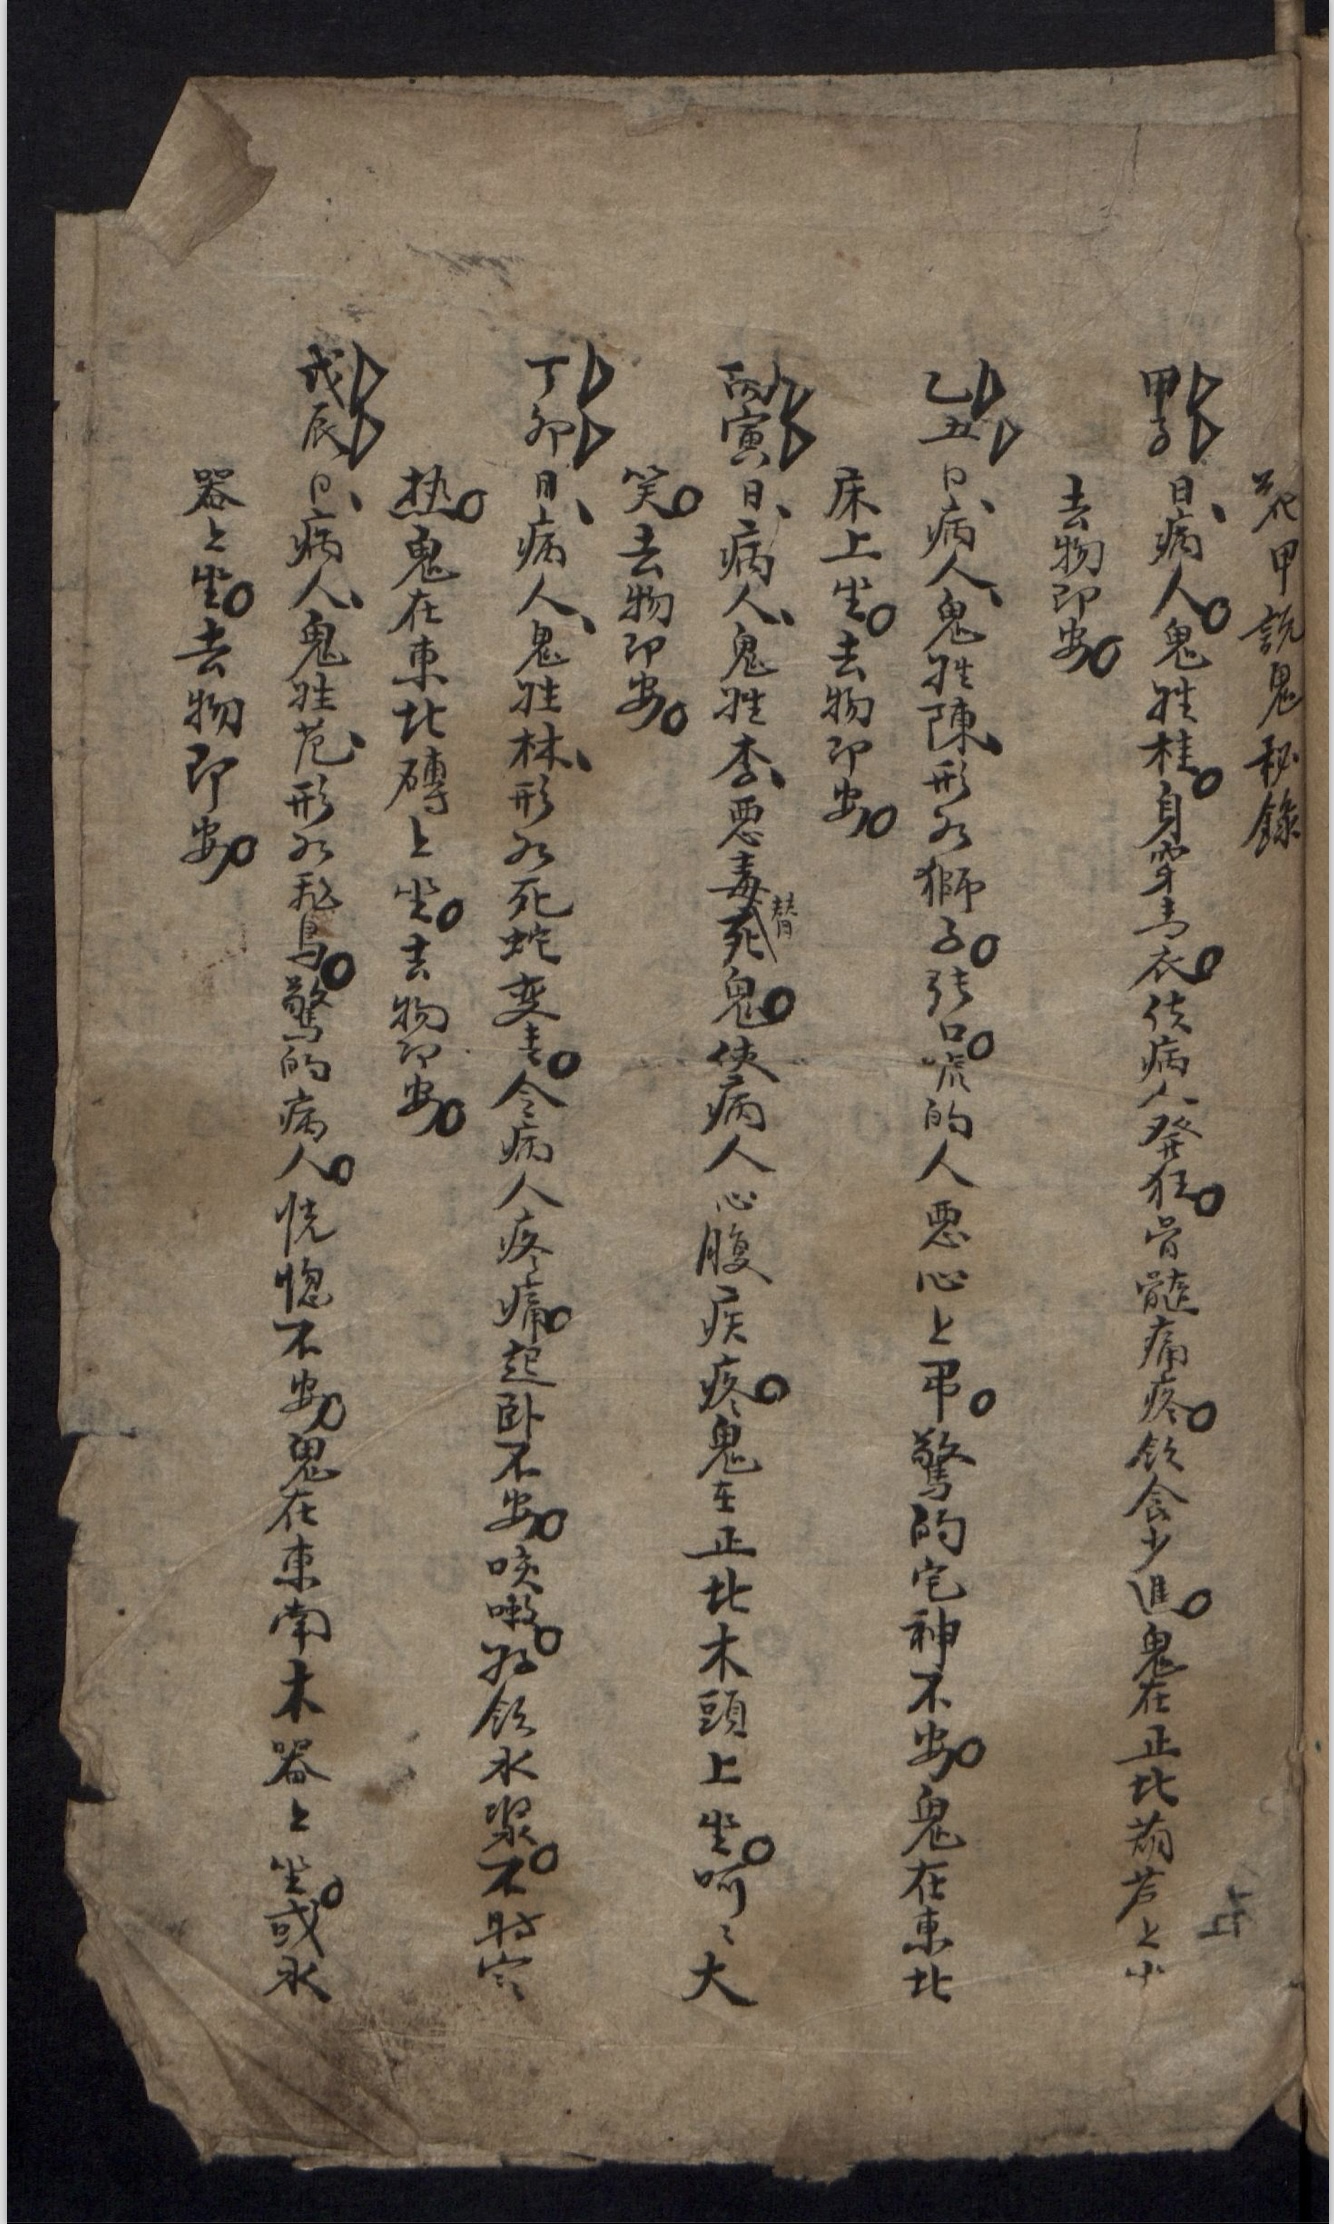 花甲說鬼秘錄
甲子日病人鬼姓桂身穿青衣使病人發狂骨髓痛疼飲食少進鬼在正北葫芦上坐
去物即安
乙丑日病人鬼姓陳形如獅子張口唬的人惡心上弔驚的宅神不安鬼在東北
床上坐去物即安
丙寅日病人鬼姓李惡毒死替鬼使病人心腹疾疼鬼在正北木頭上坐呵々大
笑去物即安
丁卯日病人鬼姓林形如死蛇変青令病人疼痛起卧不安咳嗽好飲水漿不時寒
热鬼在東北磚上坐去物即安
戊辰日病人鬼姓范形如飛鳥驚的病人恍惚不安鬼在東南木器上坐或水
器上坐去物即安